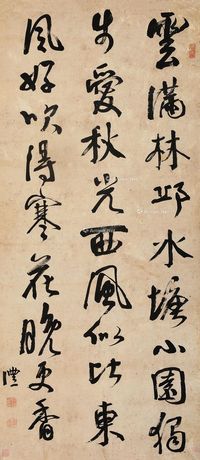 雲滿林邱水墖小園獨
步愛秋光西風似比東
風好吹得寒花晚更香
澧